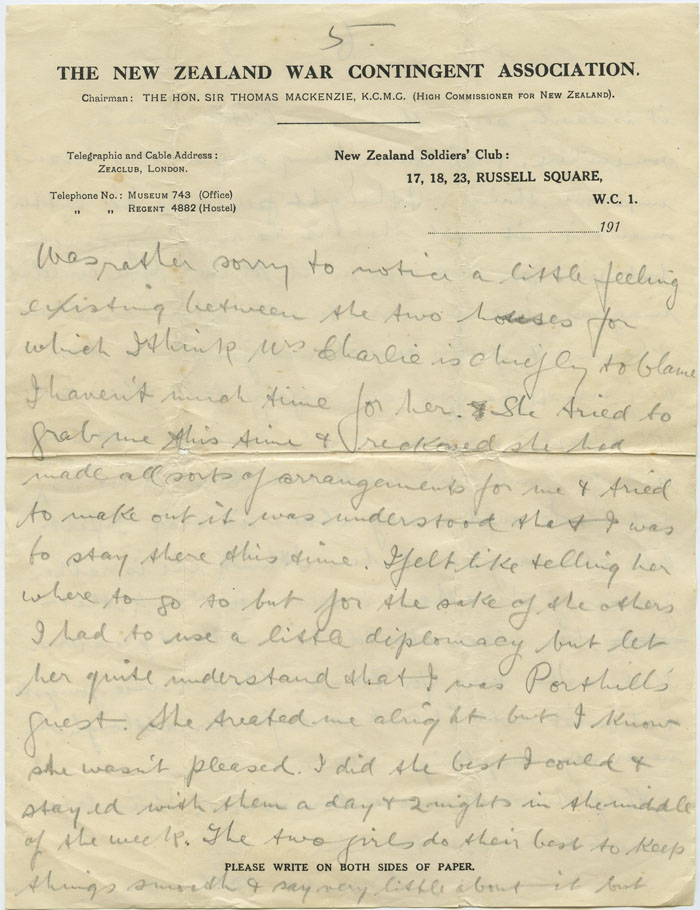 5.
THE NEW ZEALAND WAR CONTINGENT ASSOCIATION.
Chairman: THE HON. SIR THOMAS MACKENZIE, K.C.M.G. (HIGH COMMISSIONER FOR NEW ZEALAND).
Telegraphic and Cable Address:
ZEACLUB, LONDON.
Telephone No.: MUSEUM 743 (Office)
„ „ REGENT 4882 (Hostel)
New Zealand Soldiers' Club:
17, 18, 23, RUSSELL SQUARE,
W.C. 1.
191
Was rather sorry to notice a little feeling
existing between the two houses for
which I think Mrs Charlie is chiefly to blame
I haven't much time for her. & She tried to
grab me this time & reckoned she had
made all sorts of arrangements for me & tried
to make out it was understood that I was
to stay there this time. I felt like telling her
where to go to but for the sake of the others
I had to use a little diplomacy but let
her quite understand that I was Porthill's
guest. She treated me alright but I know
she wasn't pleased. I did the best I could &
stayed with them a day & 2 nights in the middle
of the week. The two girls do their best to keep
PLEASE WRITE ON BOTH SIDES OF PAPER.
things smooth & say very little about it but